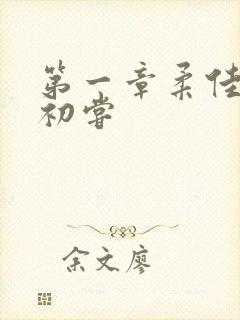 第一章柔佳
初嘗
余文廖